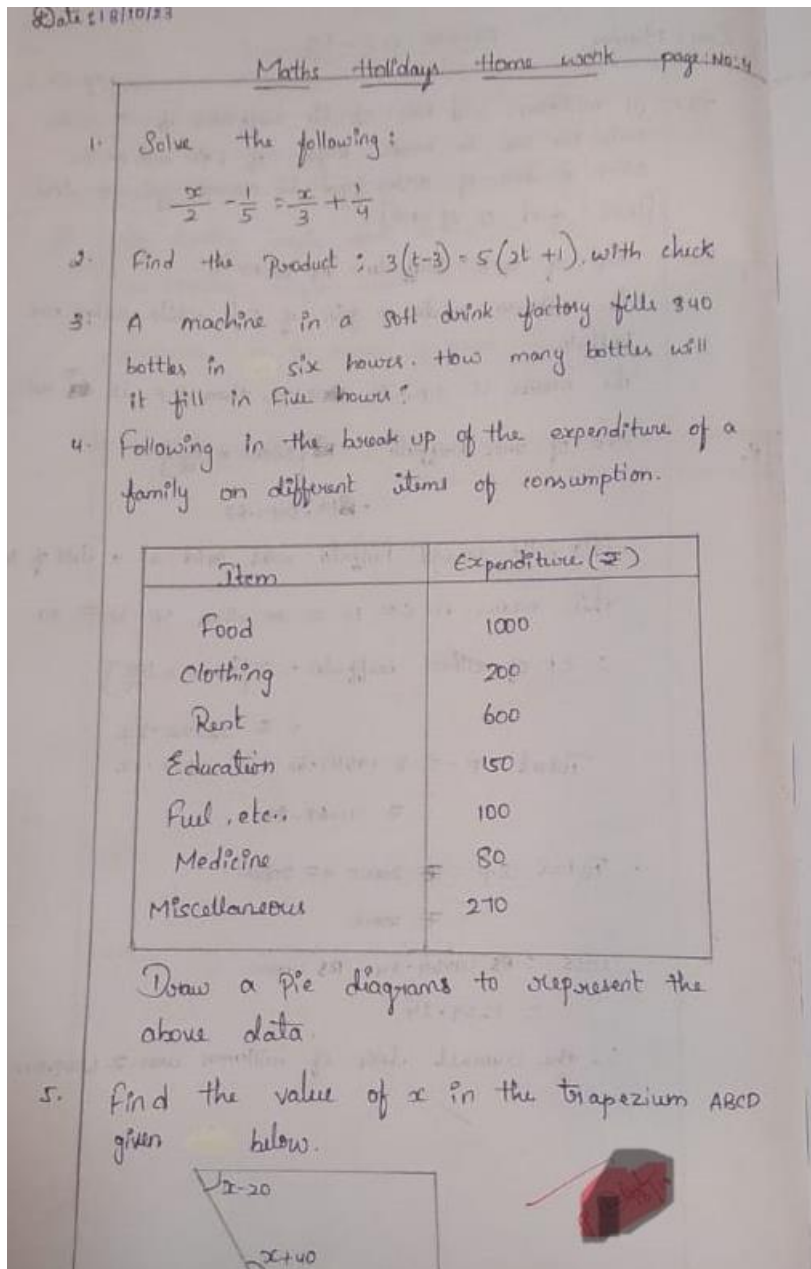 Date : 18/10/23
Maths Holidays Home work page: No: 4
1. Solve the following :
x/2 - 1/5 = x/3 + 1/4
2. Find the Product : 3(t-3) = 5(2t +1). with check
3: A machine in a soft drink factory fills 840
bottles in six hours. How many bottles will
it fill in Five hours?
4. Following in the break up of the expenditure of a
family on different items of consumption.
Item Expenditure (₹)
Food 1000
Clothing 200
Rent 600
Education 150
Fuel, etc.. 100
Medicine 80
Miscellaneous 270
Draw a Pie diagrams to represent the
above data.
5. Find the value of x in the trapezium ABCD
given below.
x-20
x+40